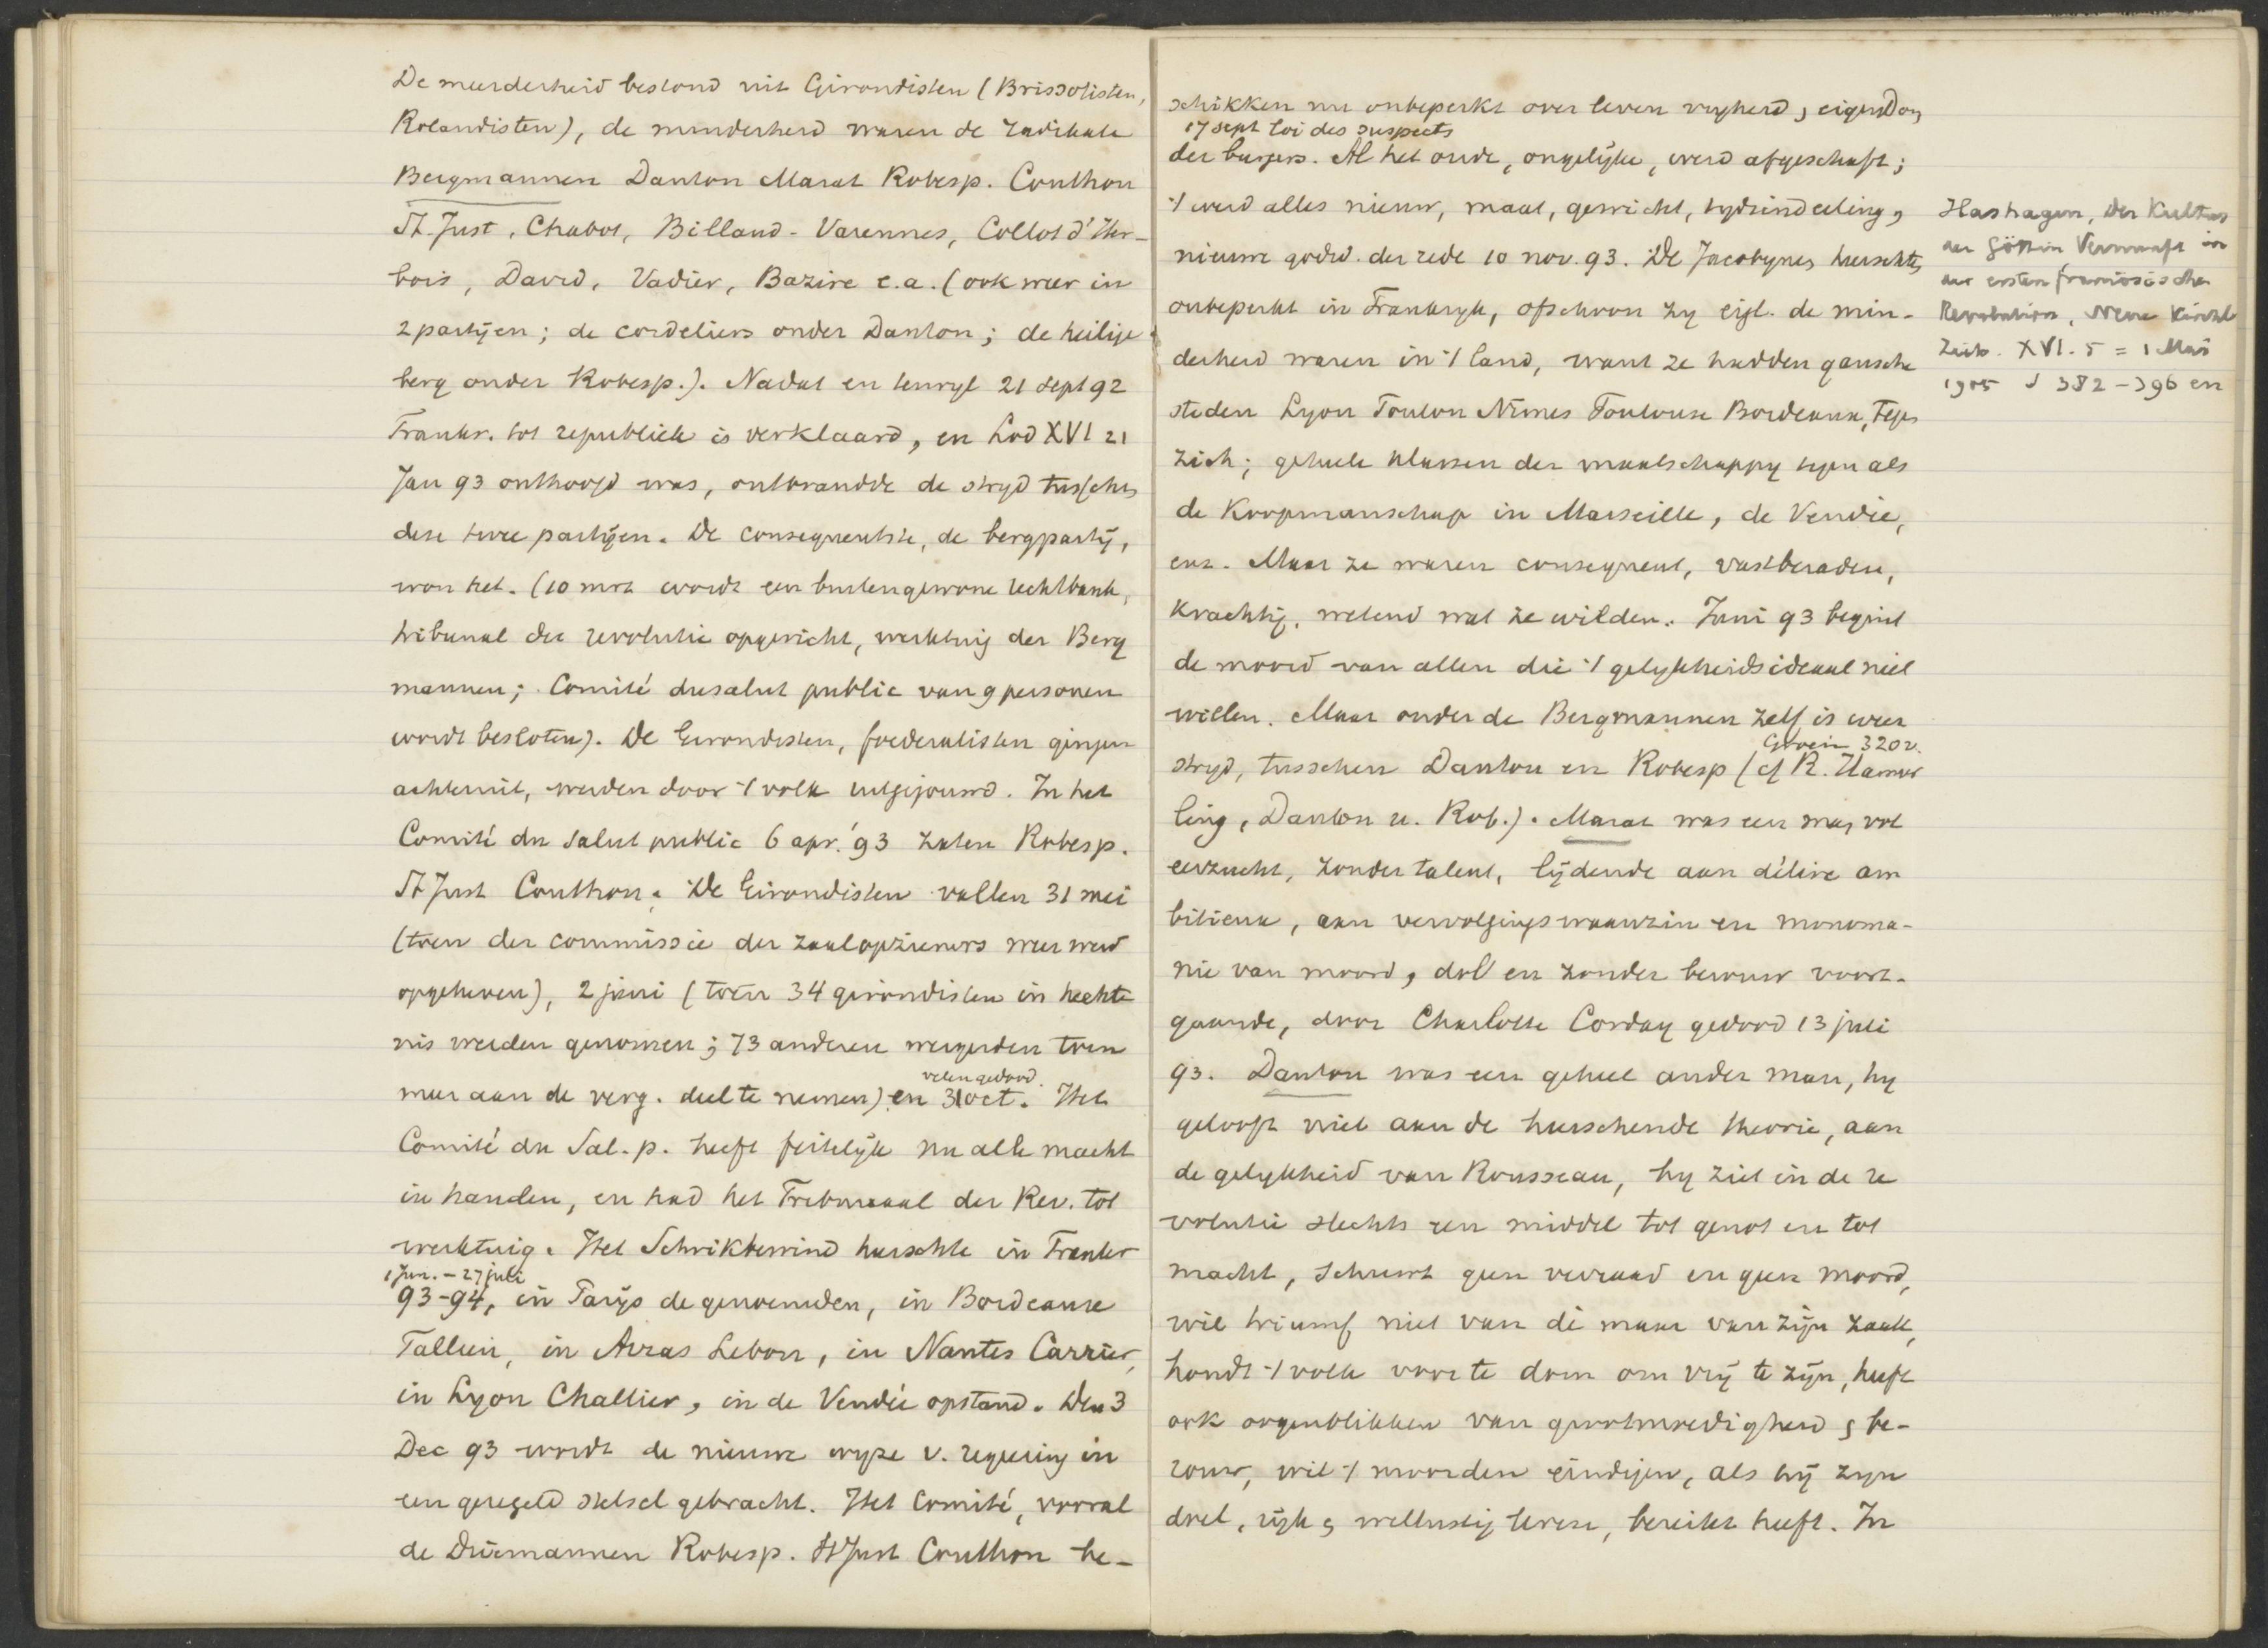 De meerderheid bestond uit Girondisten (Brissotisten,
Rolandisten), de minderheid waren de radikale
Bergmannen Danton Marat Robesp. Couthon
St. Just, Chabot, Billaud-Varennes, Collot d'Her-
bois, David, Vadier, Bazire e.a. (ook weer in
2 partijen; de cordeliers onder Danton; de heilige
berg onder Robesp.). Nadat en terwyl 21 sept 92
Frankr. tot republiek is verklaard, en Lod XVI 21
Jan 93 onthoofd was, ontbrandde de stryd tusschen
deze twee partijen. De consequentste, de bergpartij,
won het. (10 mrt wordt een buitengewone rechtbank,
tribunal der revolutie opgericht, werktuig der Berg
mannen; Comité du salut public van 9 personen
wordt besloten). De Girondisten, foederalisten gingen
achteruit, werden door 't volk uitgejouwd. In het
Comité du Salut public 6 apr. '93 zaten Robesp.
St Just Couthon. De Girondisten vallen 31 mei
(toen der commissie der zaalopzieners weer werd
opgeheven), 2 juni (toen 34 girondisten in hechte
nis werden genomen; 73 anderen weigerden toen
velen gedood.
meer aan de verg. deel te nemen) en 31 oct. Het
Comité du Sal. p. heeft feitelijk nu alle macht
in handen, en had het Tribunaal der Rev. tot
werktuig. Het Schrikbewind heerschte in Frankr
1 Jun. - 27 juli
93-94, in Parijs de genoemden, in Bordeaux
Tallien, in Arras Lebon, in Nantes Carrier,
in Lyon Challier, in de Vendée opstand. Den 3
Dec 93 wordt de nieuwe wyze v. regeering in
een geregeld stelsel gebracht. Het Comité, vooral
de Driemannen Robesp. St Just Couthon be-
schikken nu onbeperkt over leven vryheid, eigendom
17 sept loi des suspects
der burgers. Al het oude, ongelijke, werd afgeschaft;
't werd alles nieuw, maat, gewicht, tydsindeeling,
nieuwe godsd. der rede 10 nov. 93. De Jacobynen heerschten
onbeperkt in Frankryk, ofschoon zy eigl. de min-
derheid waren in 't land, want ze hadden gansche
steden Lyon Toulon Nimes Toulouse Bordeaux, tegen
zich; geheele klassen der maatschappy tegen als
de Koopmanschap in Marseille, de Vendée,
enz. Maar ze waren consequent, vastberaden,
krachtig, wetend wat ze wilden. Juni 93 begint
de moord van allen die 't gelykheidsideaal niet
willen. Maar onder de Bergmannen zelf is weer
Groen 320v.
stryd, tusschen Danton en Robesp (cf R. Hamer
ling, Danton u. Rob.). Marat was een man vol
eerzucht, zonder talent, lijdende aan délire am
bitieux, aan vervolgingswaanzin en monoma-
nie van moord, dol en zonder berouw voort-
gaande, door Charlotte Corday gedood 13 juli
93. Danton was een geheel ander man, hy
gelooft niet aan de heerschende theorie, aan
de gelykheid van Rousseau, hy ziet in de re
volutie slechts een middel tot genot en tot
macht, schuwt geen verraad en geen moord,
wil triumf niet van de maar van zijn zaak,
houdt 't volk voor te dom om vrij te zijn, heeft
ook oogenblikken van grootmoedigheid & be-
rouw, wil 't moorden eindigen, als hij zyn
doel, rijk & wellustig leven, bereikt heeft. In
Hashagen, Der Kultus
der Göttin Vernunft in
der ersten französischen
Revolution, Neue Kirchl
Zeits. XVI. 5 = 1 Mai
1905 S 382-396 en